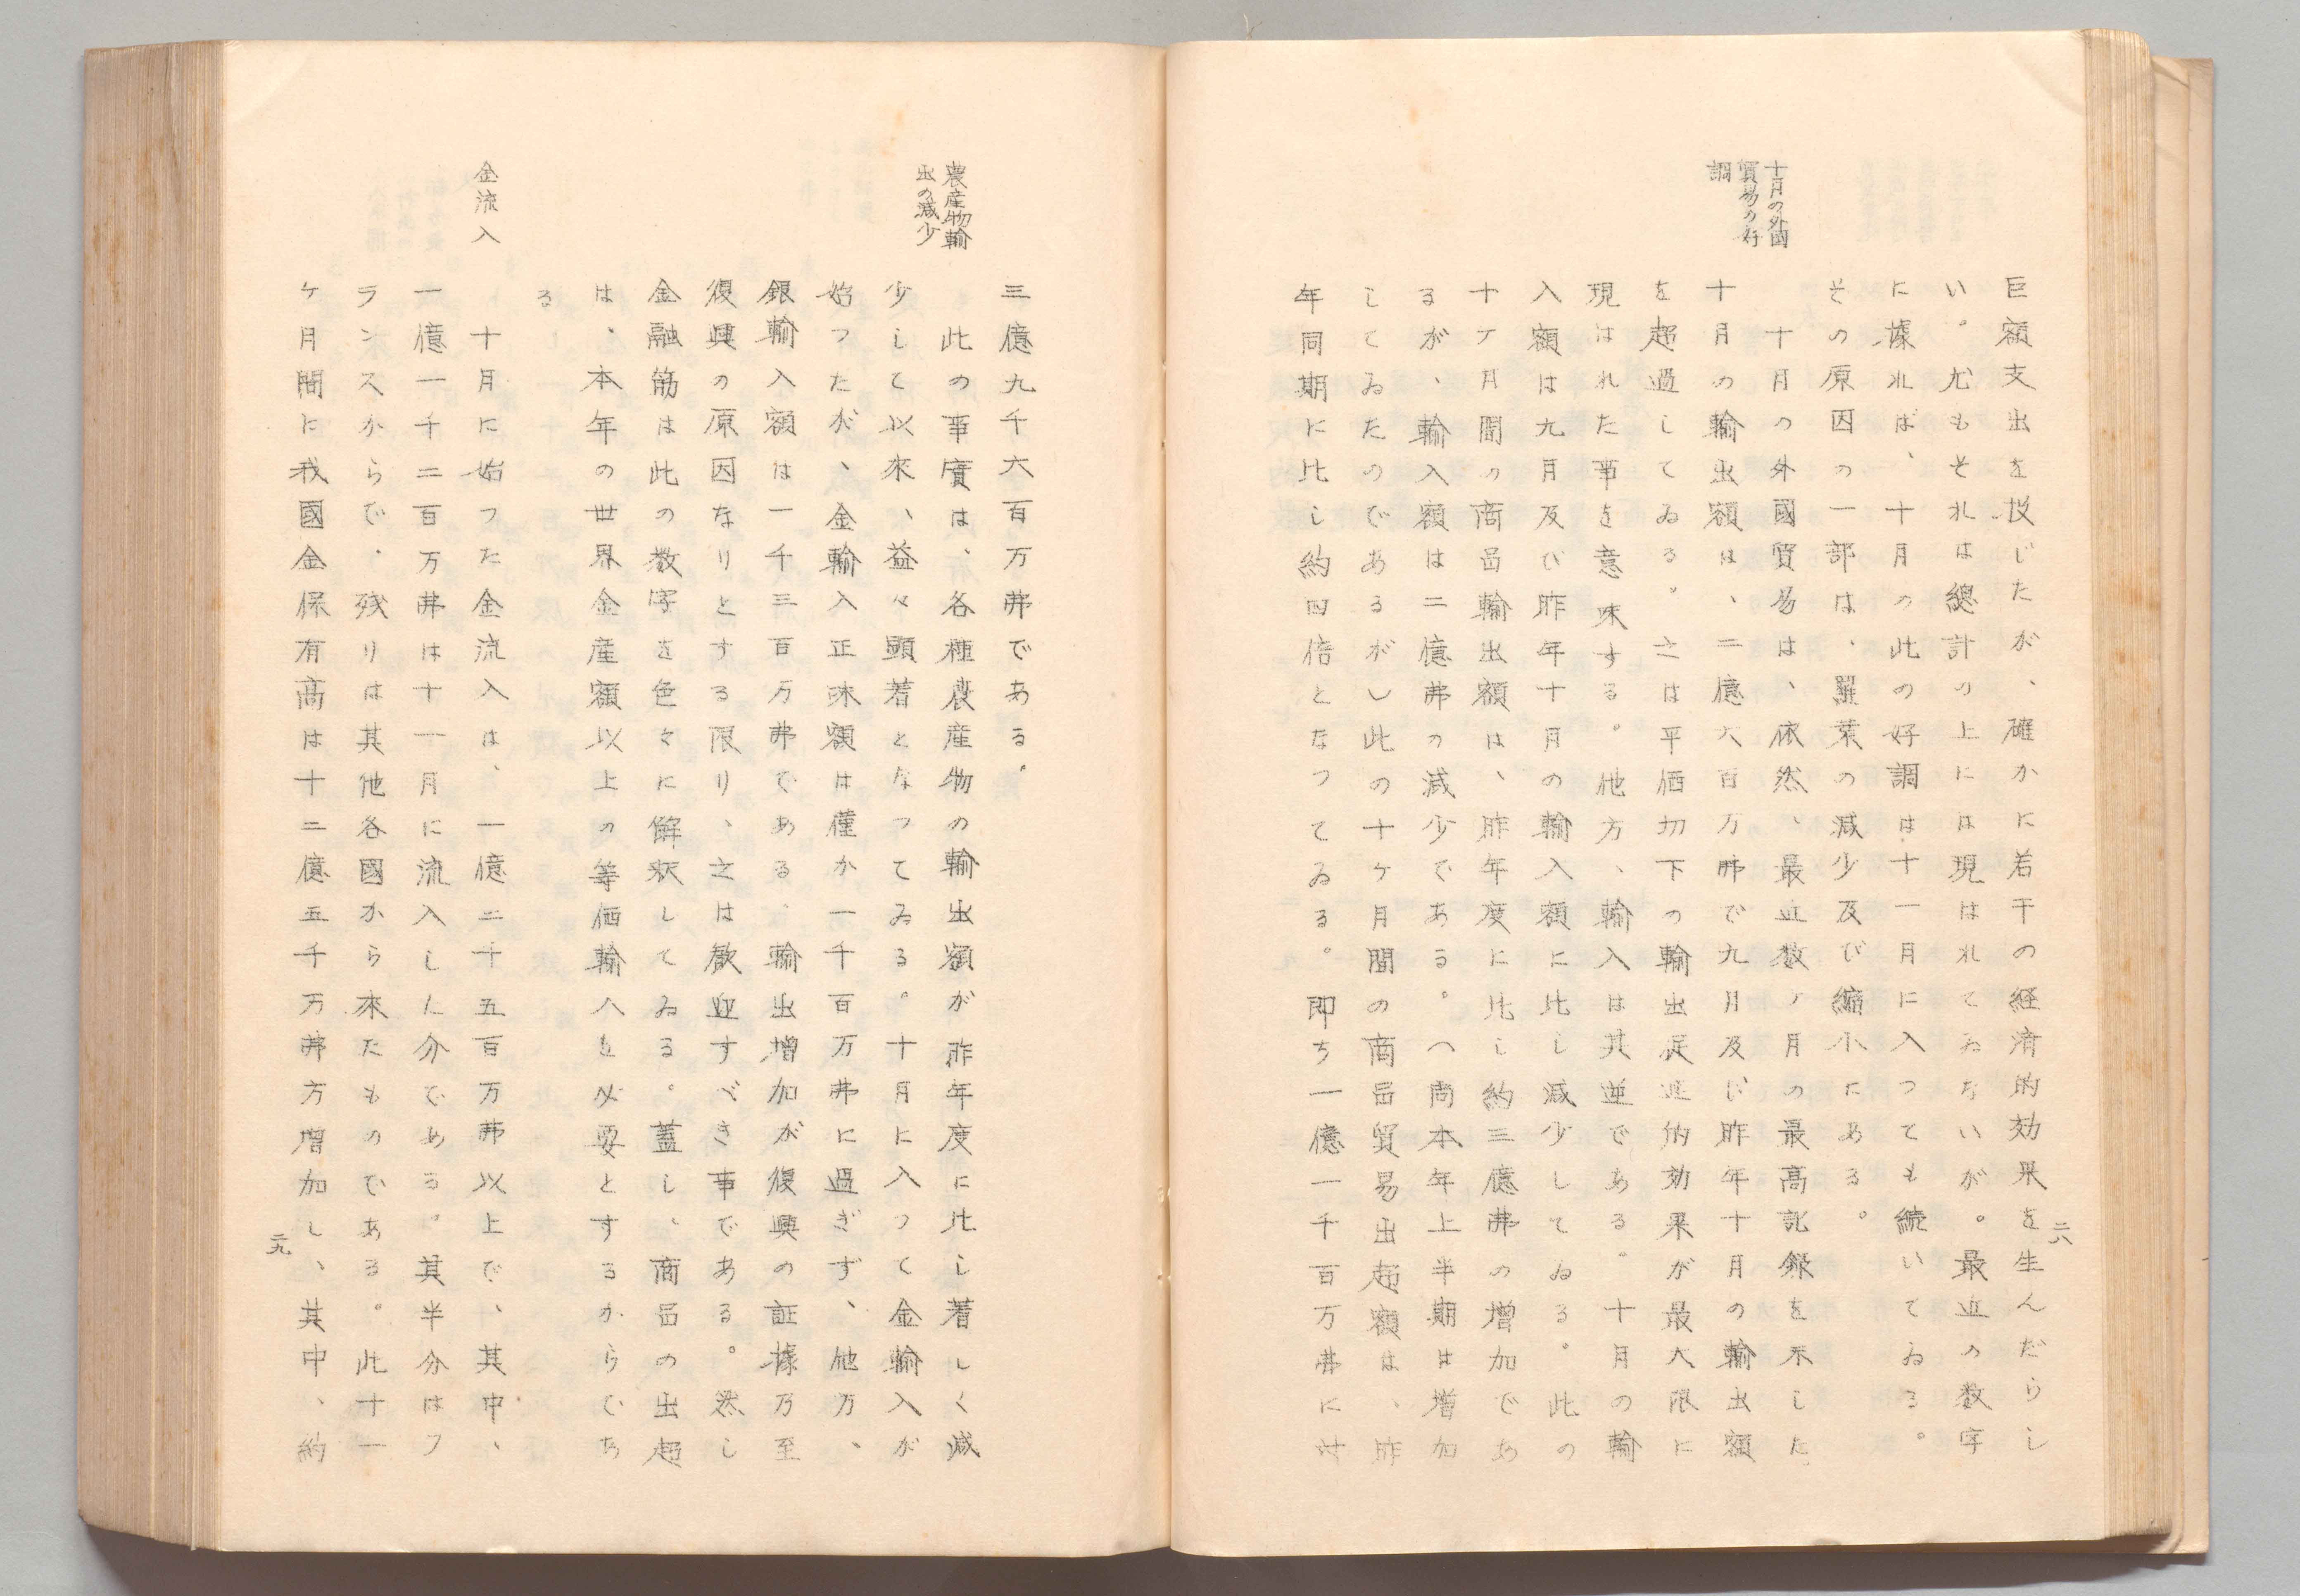 十月の外國
貿易の好
調
巨額支出を投じたが、確かに若干の経済的効果を生んだらし
い。尤もそれは總計の上には現はれてゐないが。最近の数字
に據れば、十月の此の好調は十一月に入つても続いてゐる。
その原因の一部は、羅葉の減少及び縮小にある。
十月の外國貿易は、依然、最近数ヶ月の最高記録を示した
十月の輸出額は、二億六百万弗で九月及び昨年十月の輸出額
を超過してゐる。之は平価切下の輸出促進的効果が最大限に
現はれた事を意味する。他方、輸入は其逆である。十月の輸
入額は九月及び昨年十月の輸入額に比し減少してゐる。此の
十ヶ月間の商品輸出額は、昨年度に比し約三億弗の増加であ
るが、輸入額は二億弗の減少である。（尚本年上半期は増加
してゐたのであるが）此の十ヶ月間の商品貿易出超額は、昨
年同期に比し約四倍となつてゐる。即ち一億一千百万弗に対
二八
農産物輸
出の減少
金流入
三億九千六百万弗である。
此の事實は、各種農産物の輸出額が昨年度に比し著しく減
少して以來、益々顕著となつてゐる。十月に入つて金輸入が
始つたが、金輸入正味額は僅か一千百万弗に過ぎず、他方、
銀輸入額は一千三百万弗である、輸出増加が復興の証據乃至
復興の原因なりとする限り、之は歓迎すべき事である。然し
金融筋は此の数字を色々に解釈してゐる。蓋し、商品の出超
は、本年の世界金産額以上の等価輸入を必要とするからであ
る
十月に始つた金流入は、一億二千五百万弗以上で、其中、
一億一千二百万弗は十一月に流入した分である。其半分はフ
ランスからで、残りは其他各國から來たものである。此十一
ヶ月間に我國金保有高は十二億五千万弗方増加し、其中、約
二九